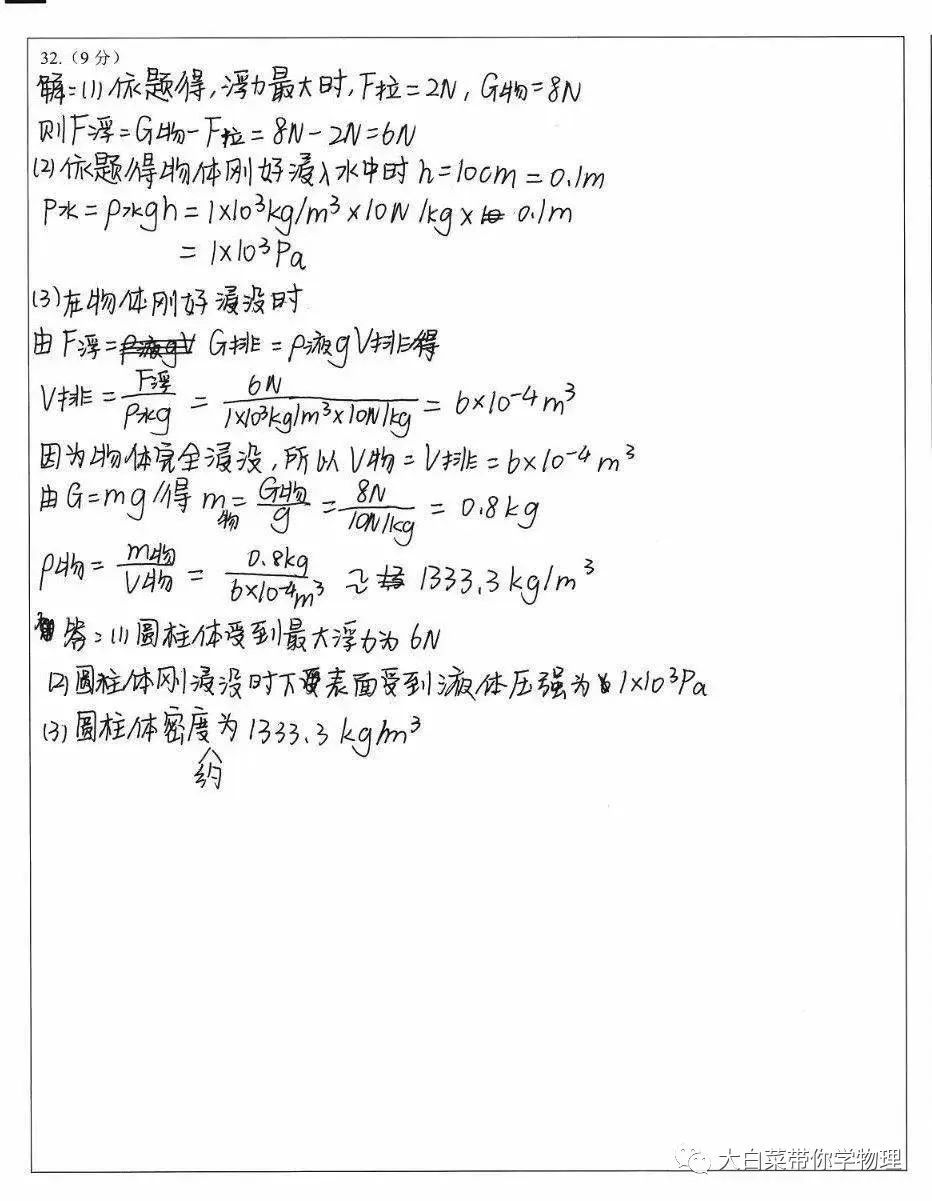 32.（9 分）
解：(1)依题得，浮力最大时，F拉=2N，G物=8N
则F浮=G物-F拉=8N-2N=6N
(2)依题得物体刚好浸入水中时 h=10cm=0.1m
P水=ρ水gh=1×10³kg/m³×10N/kg× 0.1m
=1×10³Pa
(3)在物体刚好浸没时
由F浮=ρ液gV G排=ρ液gV排得
V排=F浮/ρ水g=6N/1×10³kg/m³×10N/kg=6×10⁻⁴m³
因为物体完全浸没，所以V物=V排=6×10⁻⁴m³
由G=mg得 m物=G物/g=8N/10N/kg=0.8kg
ρ物=m物/V物=0.8kg/6×10⁻⁴m³≈1333.3kg/m³
答：(1)圆柱体受到最大浮力为6N
(2)圆柱体刚浸没时下表面受到液体压强为1×10³Pa
(3)圆柱体密度约为1333.3kg/m³
大白菜带你学物理